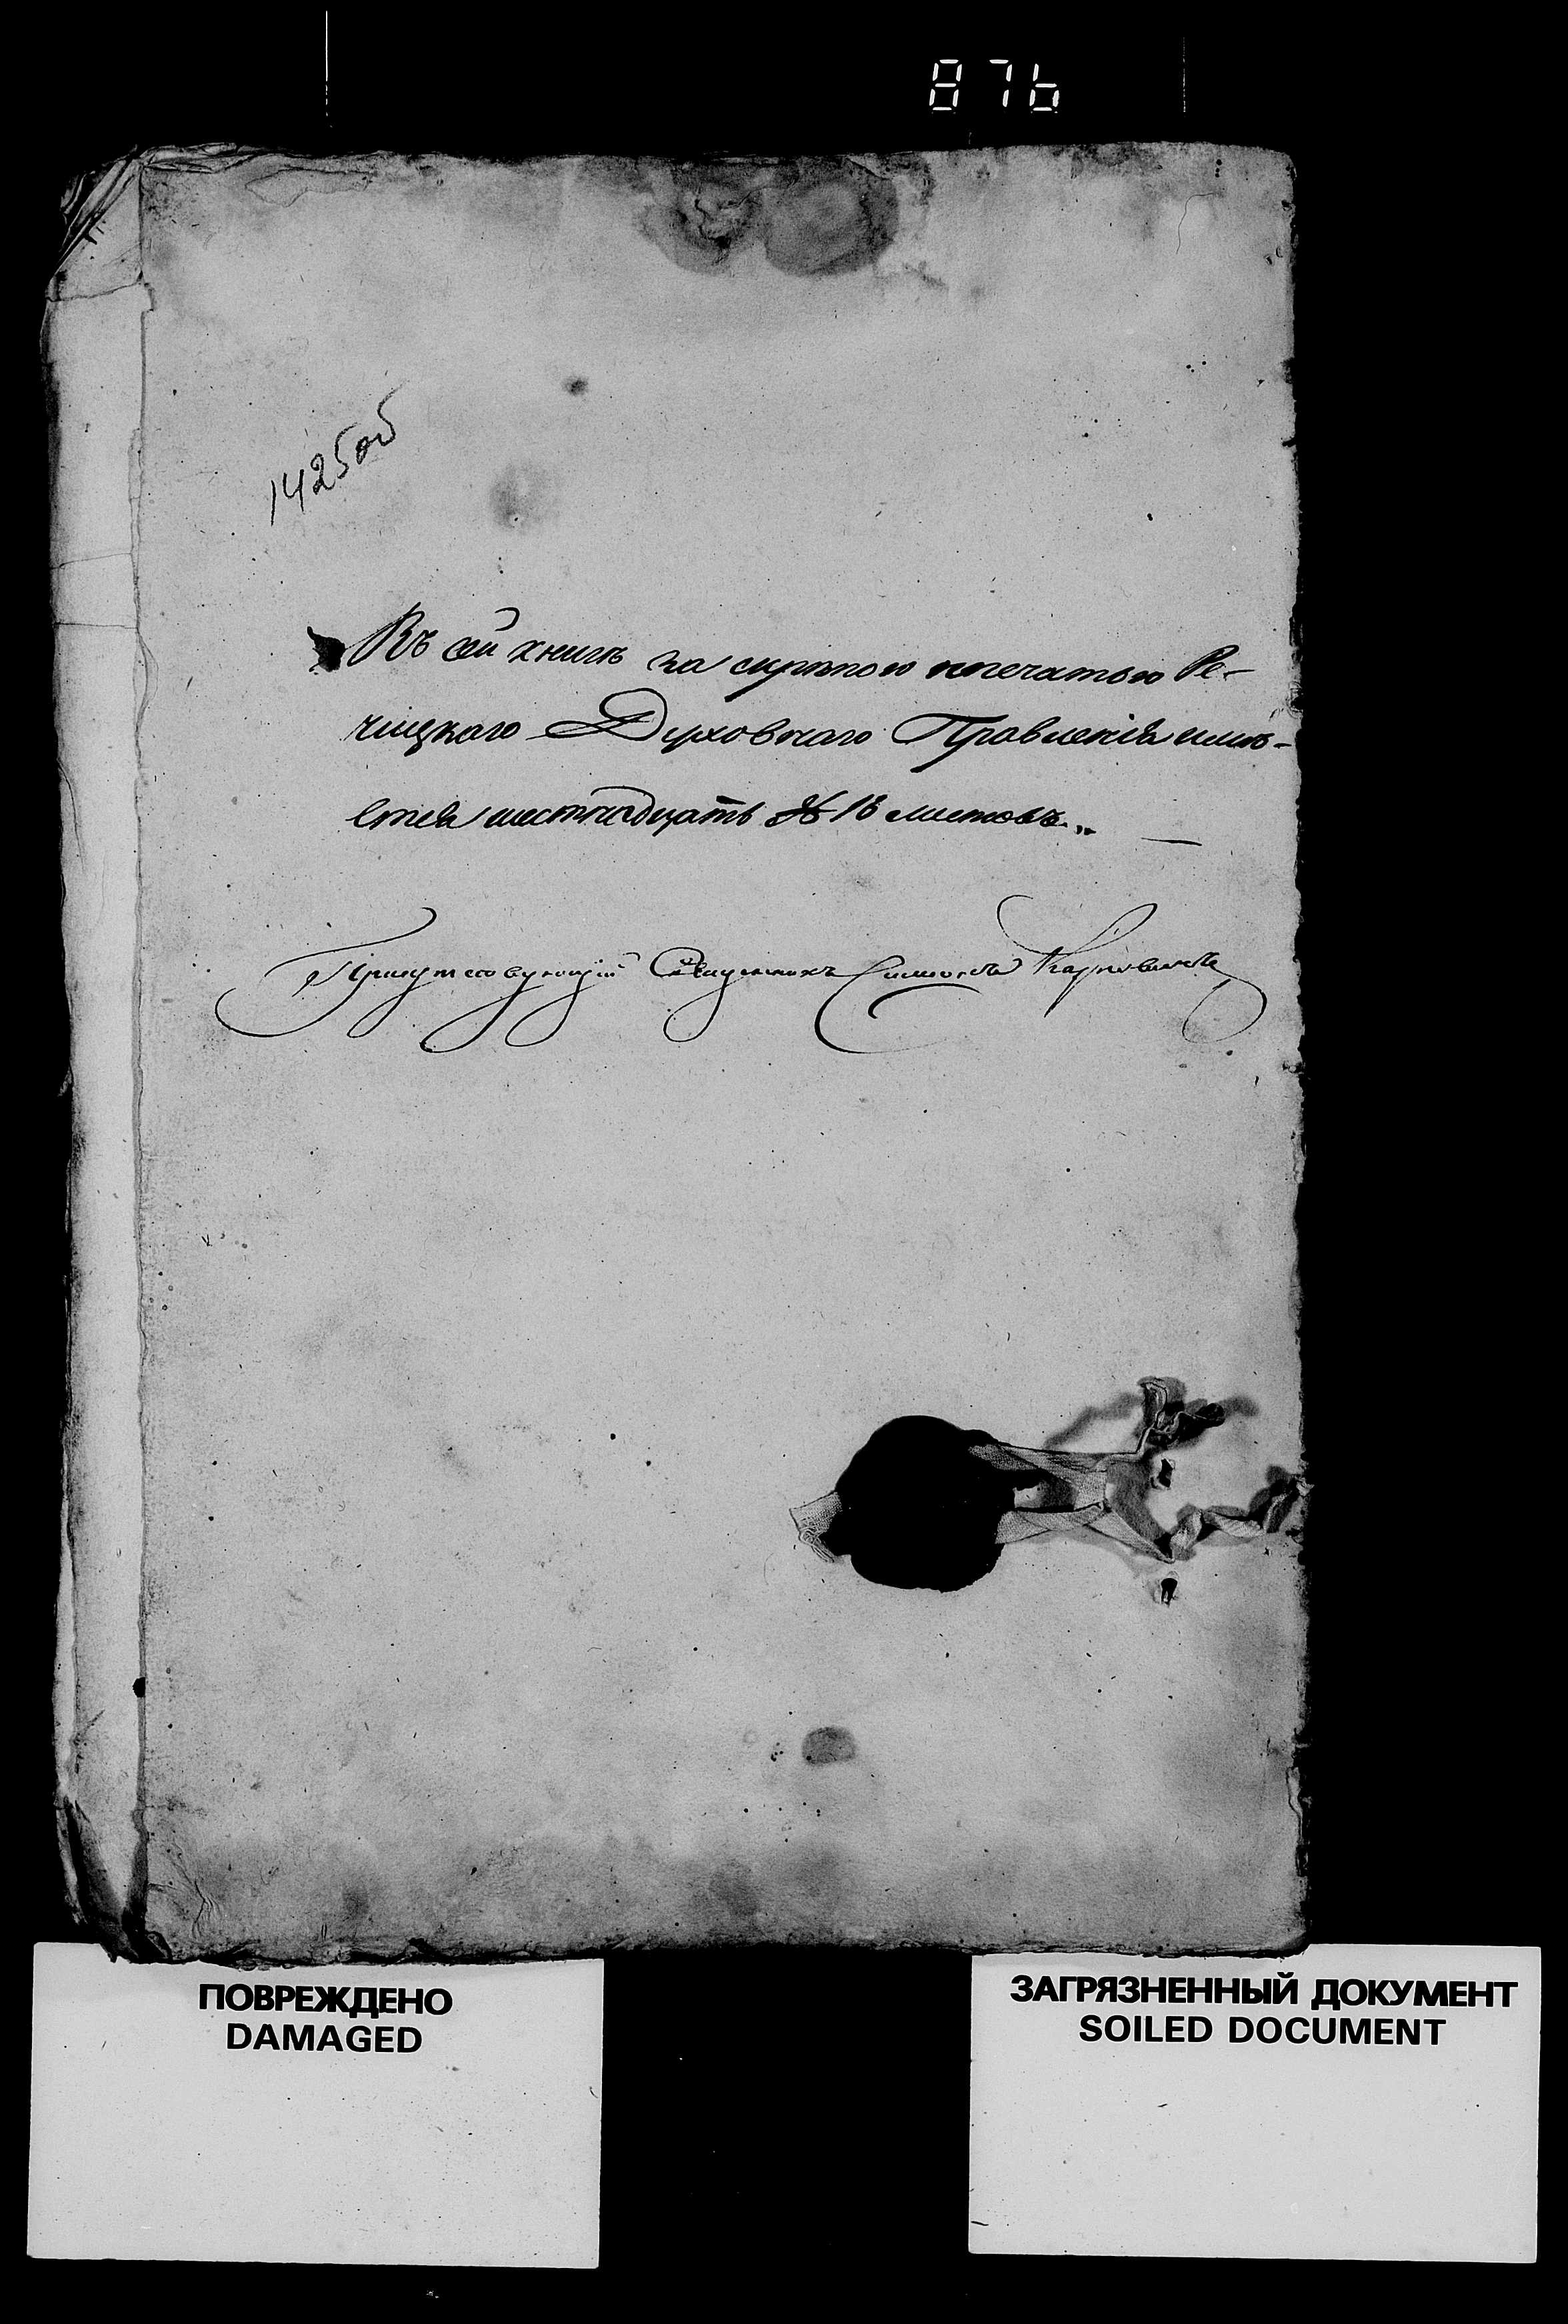 876
1425об
Въ сей книгѣ за скрѣпою и печатью Ре-
чицкаго Духовнаго Правленія имѣ-
ется шестнадцать № 16 листовъ.,,
Присутсвующій Священникъ Симонъ Карповичъ
ПОВРЕЖДЕНО
DAMAGED
ЗАГРЯЗНЕННЫЙ ДОКУМЕНТ
SOILED DOCUMENT